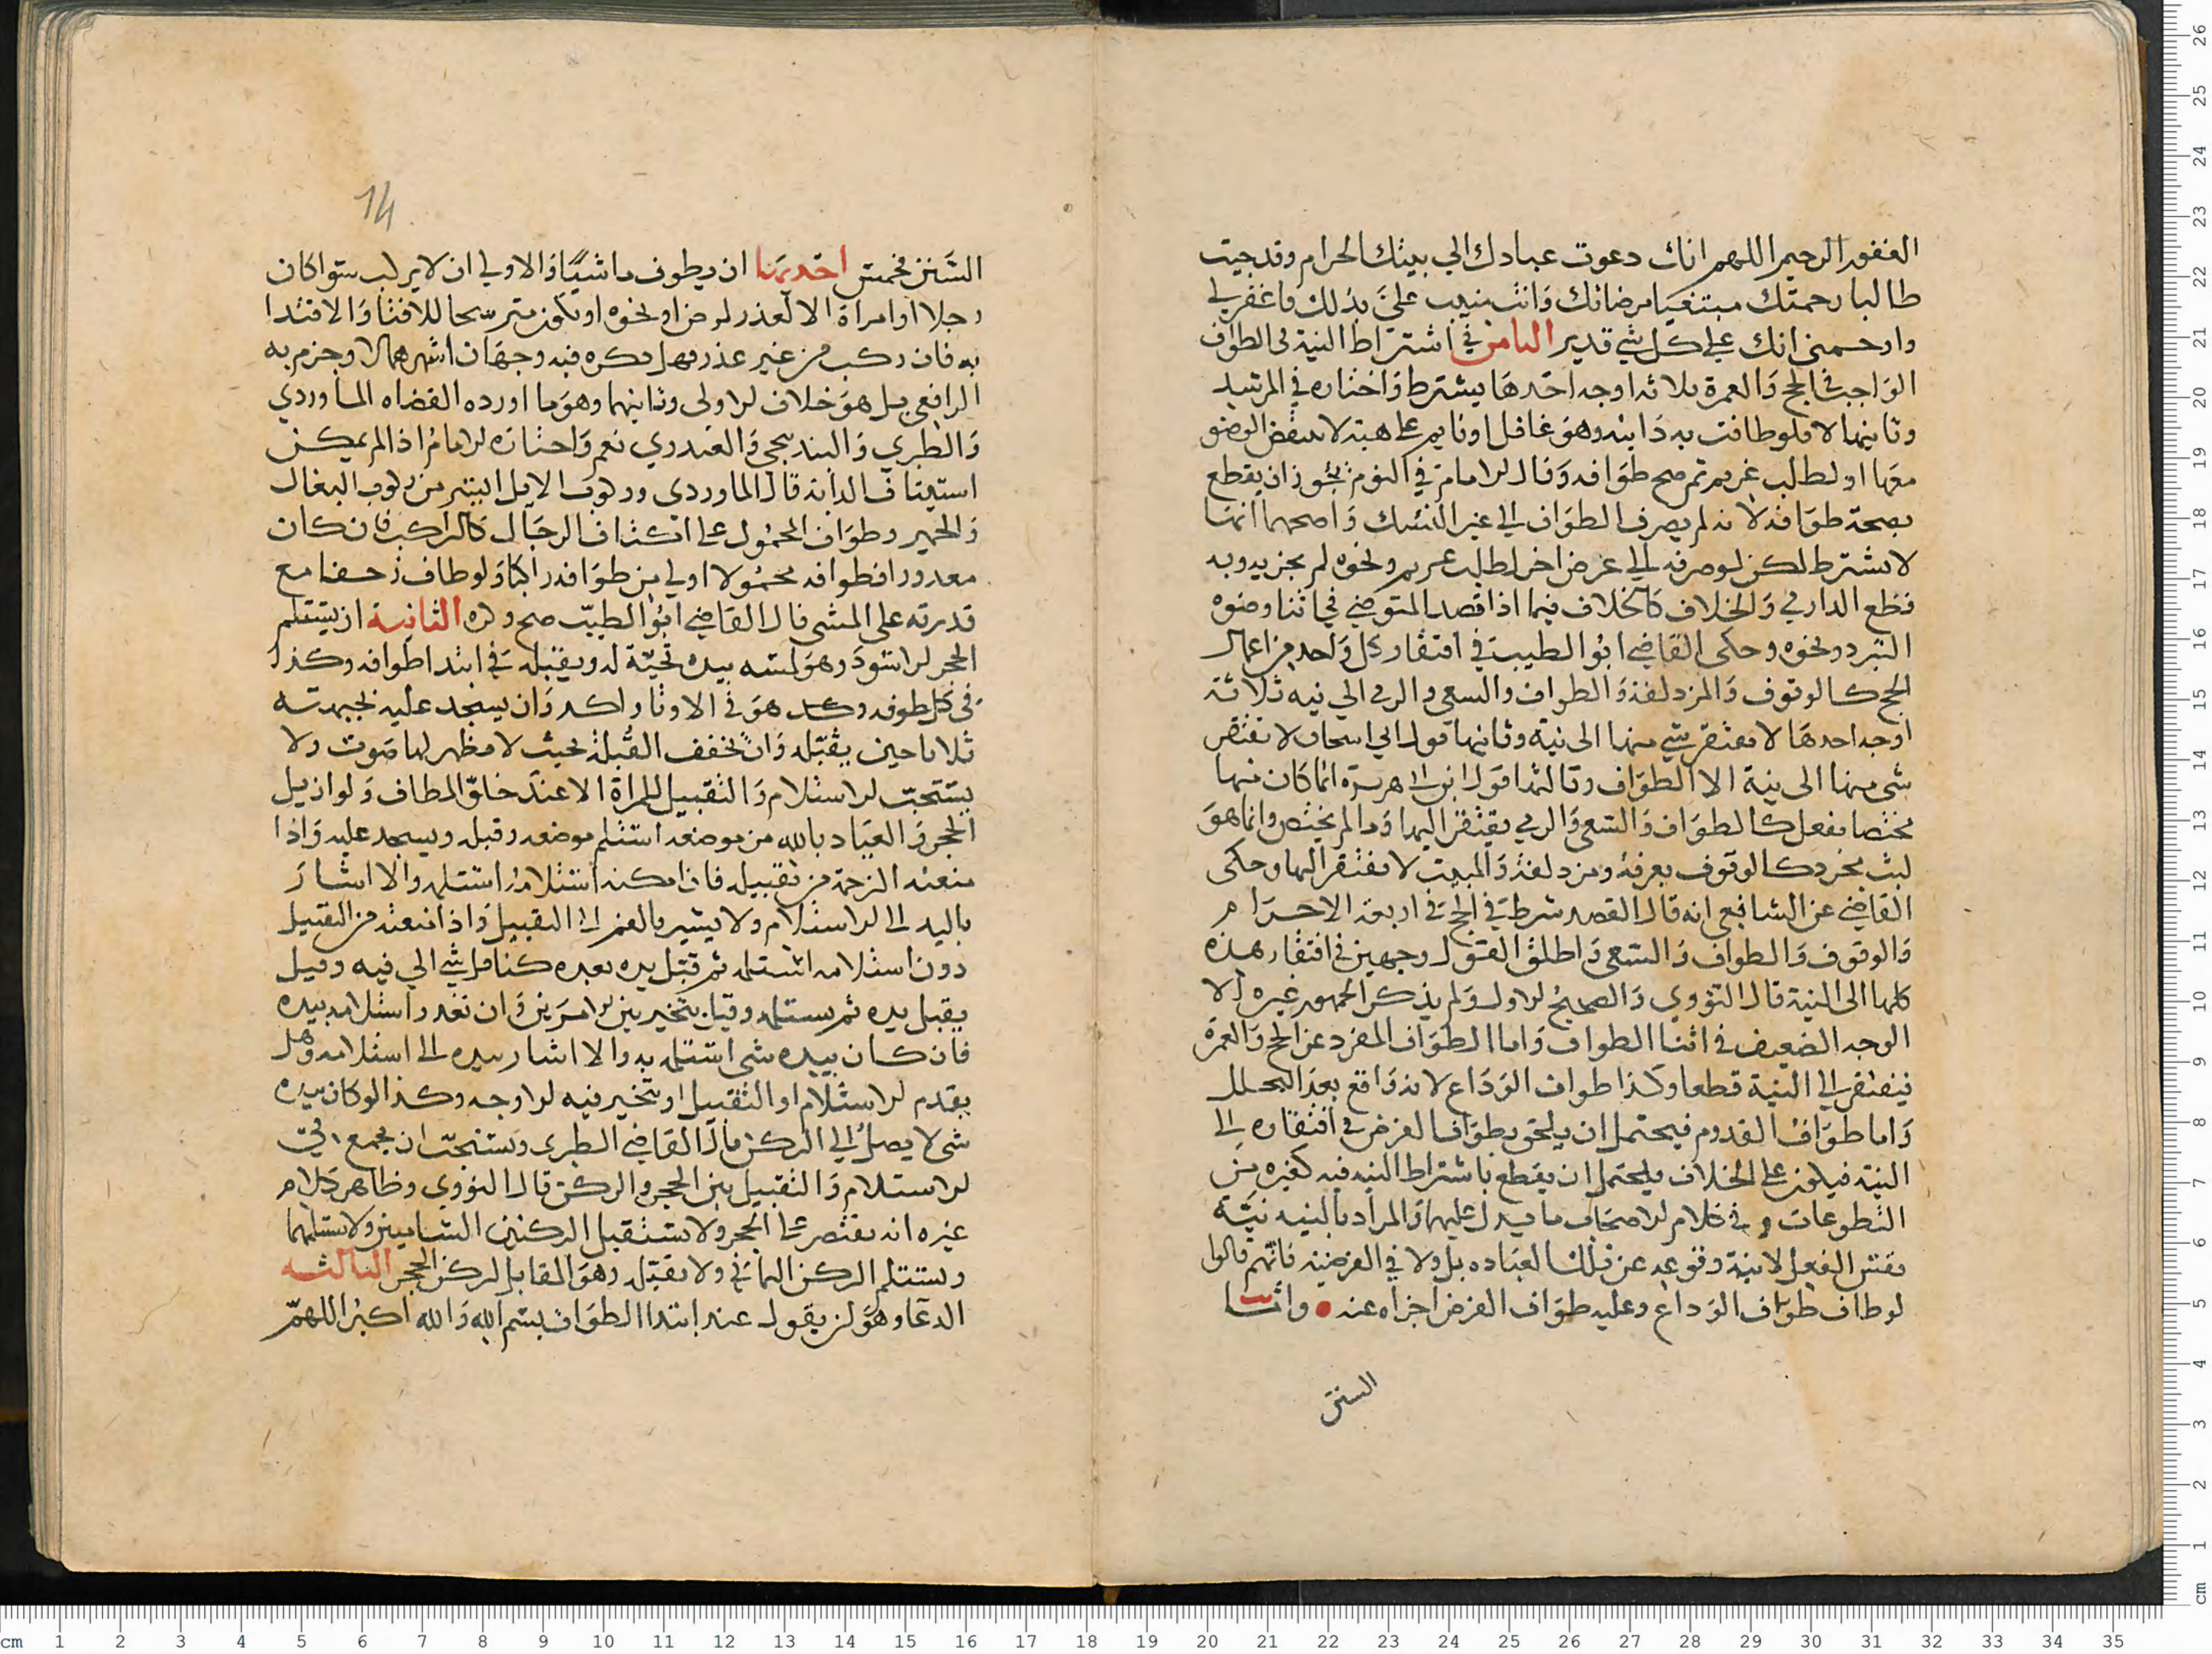 الغفور الرحيم اللهم انك دعوت عبادك الي بيتك الحرام وقد جيت
طالبا رحمتك مبتغيا مرضاتك وانت منيب علي بذلك فاغفر لي
وارحمني انك علي كل شي قدير الثامن في اشتراط النية في الطواف
الواجب في الحج والعمرة ثلاثه اوجه احدها يشترط واختاره في المرشد
وثانيها لا فلو طافت به دابته وهو غافل او نايم علي هيئة لا تنقض الوضو
معها او لطلب غريم ثم صح طوافه وقال الامام في النوم يجوز ان يقطع
بصحة طوافه لانه لم يصرف الطواف الي غير النسك واصحها انها
لا تشترط لكن لو صرفه الي غرض اخر لطلب غريم ونحوه لم يجز يه وبه
قطع الدارمي والخلاف كالخلاف فيما اذا قصد المتوضي في اثنا وضوه
التبرد ونحوه وحكي القاضي ابو الطيب في افتقار كل واحد من اعمال
الحج كالوقوف والمزدلفة والطواف والسعي والرمي الي نيه ثلاثة
اوجه احدها لا يفتقر شي منها الي نية وثانيها قول ابي اسحاق لا يفتقر
شي منها الي نية الا الطواف وثالثها قول ابن ابي هريرة انما كان منها
مختصا بفعل كالطواف والسعي والرمي يفتقر اليها وما لم يختص وانما هو
لبث مجرد كالوقوف بعرفة ومزدلفة والمبيت لا يفتقر اليها وحكي
القاضي عن الشافعي انه قال القصد شرط في الحج في اربعة الاحرام
والوقوف والطواف والسعي واطلق القول وجهين في افتقار هذه
كلها الي النية قال النووي والصحيح الاول ولم يذكر الجمهور غيره الا
الوجه الضعيف في اثنا الطواف واما الطواف المفرد عن الحج والعمرة
فيفتقر الي النية قطعا وكذا طواف الوداع لانه واقع بعد التحلل
واما طواف القدوم فيحتمل ان يلحق بطواف الفرض في افتقاره الي
النية فيكون علي الخلاف ويحتمل ان يقطع باشتراط النيه فيه كغيره من
التطوعات وفي كلام الاصحاب ما يدل عليهما والمراد بالنيه نية
نفس الفعل لا نية وقوعه عن تلك العباده بل ولا في الفرضية فانهم قالوا
لو طاف طواف الوداع وعليه طواف الفرض اجزاه عنه • واما
السنن
14
السنن فخمس احديها ان يطوف ماشيا والاولي ان لا يركب سوا كان
رجلا او امراة الا لعذر لمرض او نحوه او يكون مترسحا للافتا والاقتدا
به فان ركب من غير عذر فهل يكره فيه وجهان اشهرهما لا وجزم به
الرافعي بل هو خلاف الاولي وثانيهما وهو ما اورده القضاه الماوردي
والطبري والبندنيجي والعبدري نعم واختاره الامام اذا لم يمكن
استيثاق الدابه قال الماوردي وركوب الابل ايسر من ركوب البغال
والحمير وطواف المحمول علي اكتاف الرجال كالراكب فان كان
معذورا فطوافه محمولا اولي من طوافه راكبا ولو طاف زحفا مع
قدرته علي المشي قال القاضي ابو الطيب صح وكره الثانية ان يستلم
الحجر الاسود وهو لمسه بيده تحية له ويقبله في ابتدا طوافه وكذا
في كل طوفه وكد هو في الاوتار اكد وان يسجد عليه بجبهته
ثلاثا حين يقبله وان يخفف القبلة بحيث لا يظهر لها صوت ولا
يستحب الاستلام والتقبيل للمراة الا عند خلو المطاف ولو ازيل
الحجر والعياذ بالله من موضعه استلم موضعه وقبله ويسجد عليه واذا
منعته الزحمة من تقبيله فان امكنه استلامه استلمه والا اشار
باليد الي الاستلام ولا يشير بالفم الي التقبيل واذا منعته من التقبيل
دون استلامه استلمه ثم قبل يده بعده كناقل شي الي فيه وقيل
يقبل يده ثم يستلمه وقيل يتخير بين الامرين وان تعذر استلامه بيده
فان كان بيده شي استلمه به والا اشار بيده الي استلامه وهل
يقدم الاستلام او التقبيل او يتخير فيه اوجه وكذا لو كان بيده
شي لا يصل الي الركن قال القاضي الطبري ويستحب ان يجمع في
الاستلام والتقبيل بين الحجر والركن قال النووي وظاهر كلام
غيره انه يقتصر علي الحجر ولا يستقبل الركنين الشاميين ولا يستلمهما
ويستلم الركن اليماني ولا يقبل وهو المقابل لركن الحجر الثالثه
الدعا وهو ان يقول عند ابتدا الطواف بسم الله والله اكبر اللهم